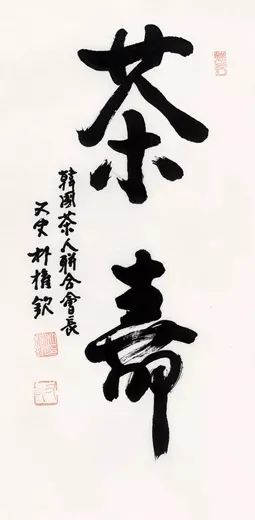 茶壽
韓國茶人聯合會長
又史 朴權欽